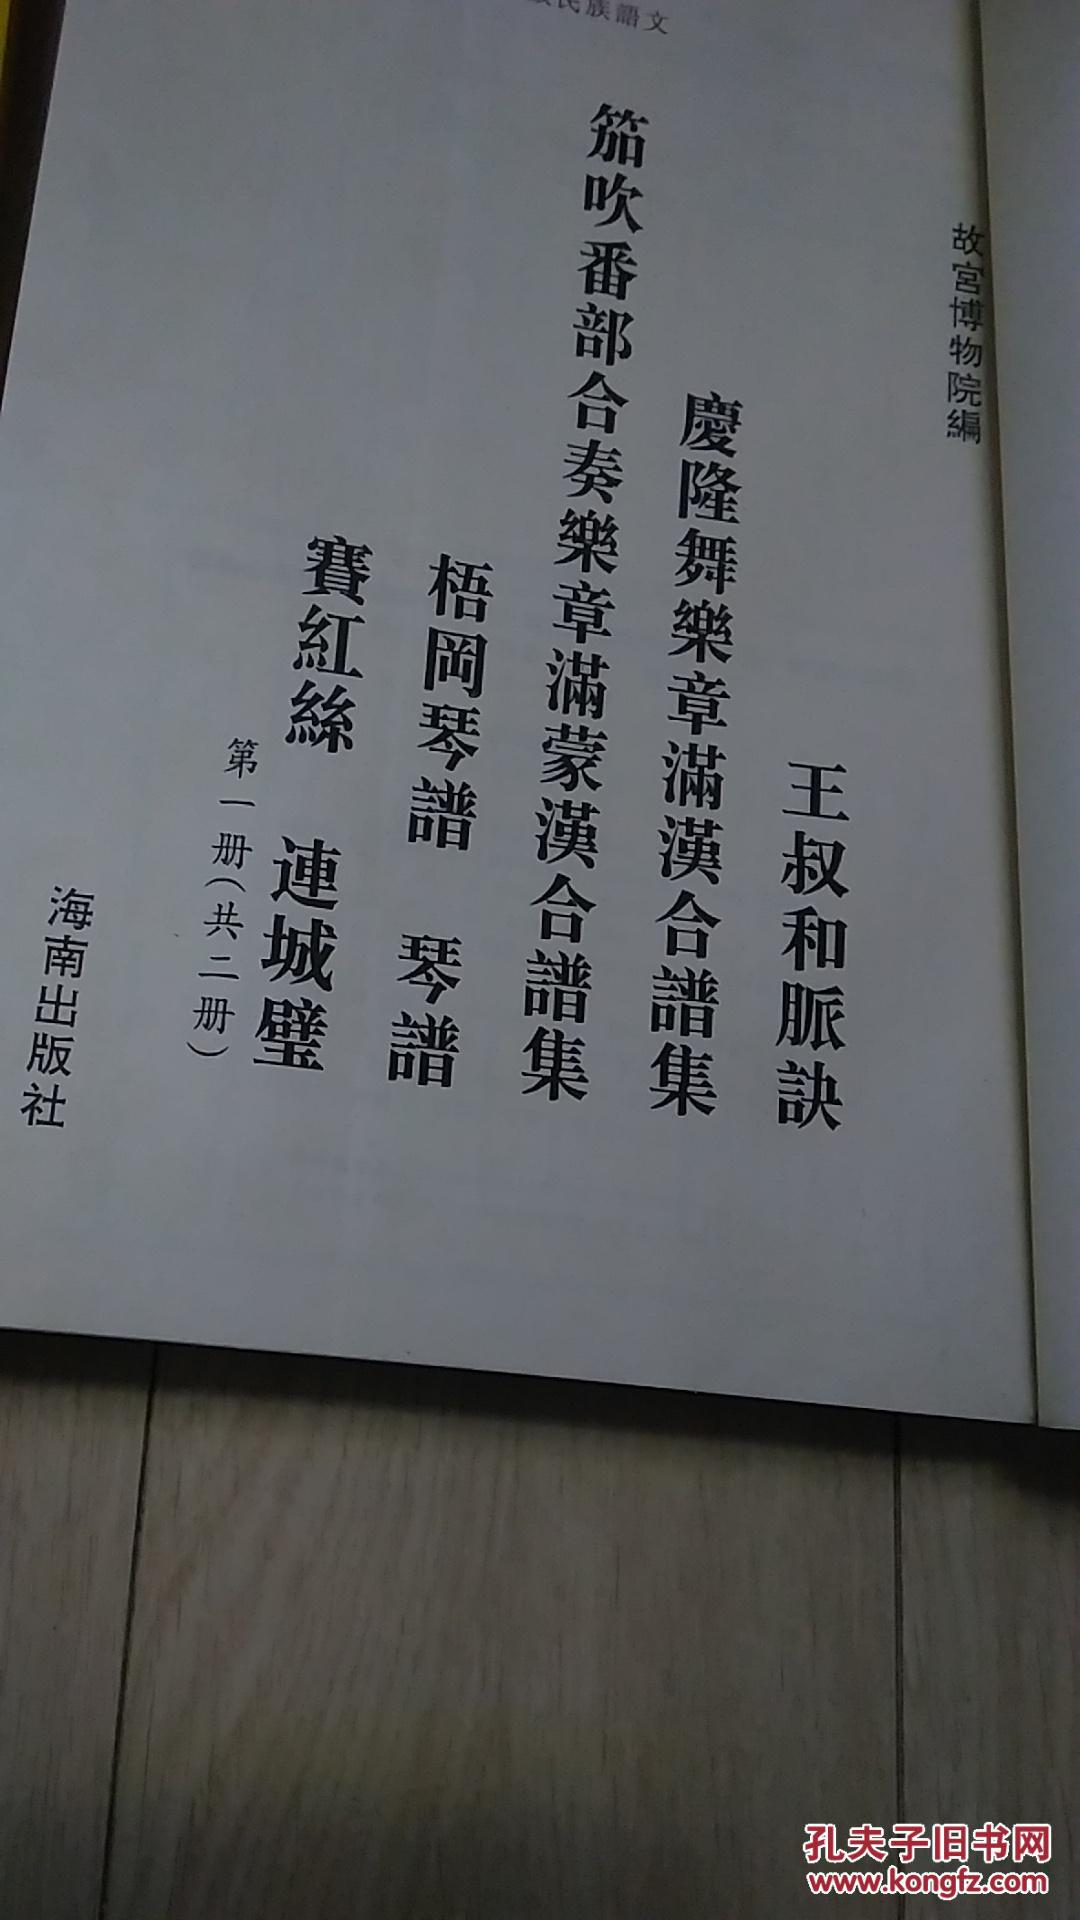 民族語文
故宮博物院編
王叔和脈訣
慶隆舞樂章滿漢合譜集
笳吹番部合奏樂章滿蒙漢合譜集
梧岡琴譜 琴譜
賽紅絲 連城璧
第一册(共二册)
海南出版社
孔夫子旧书网
www.kongfz.com